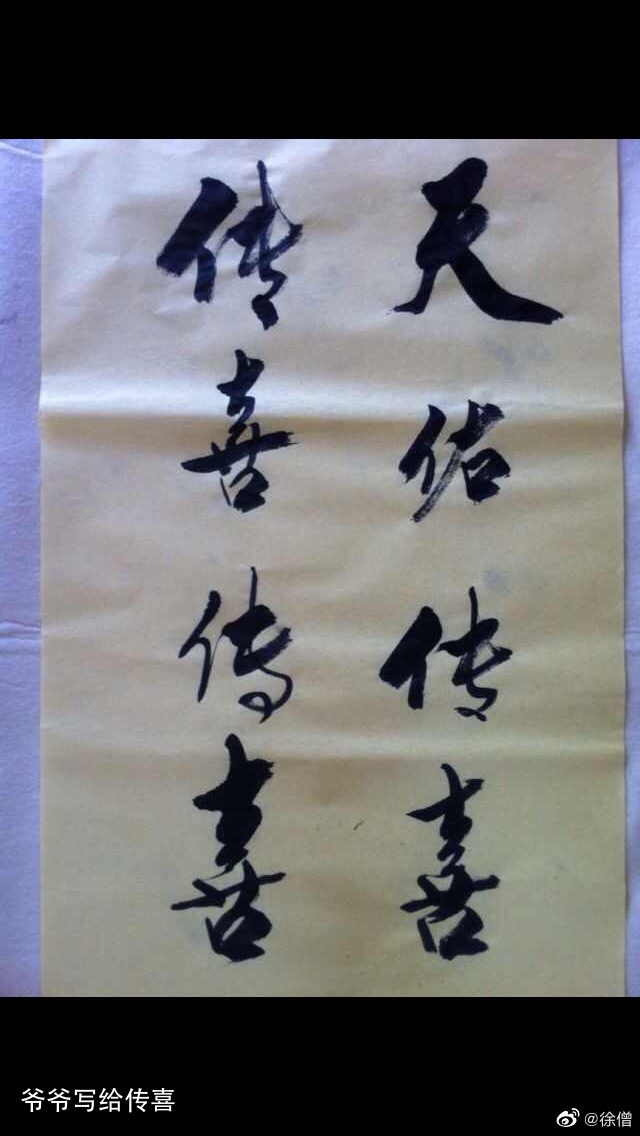 天佑传喜
传喜传喜
爷爷写给传喜
@徐僧